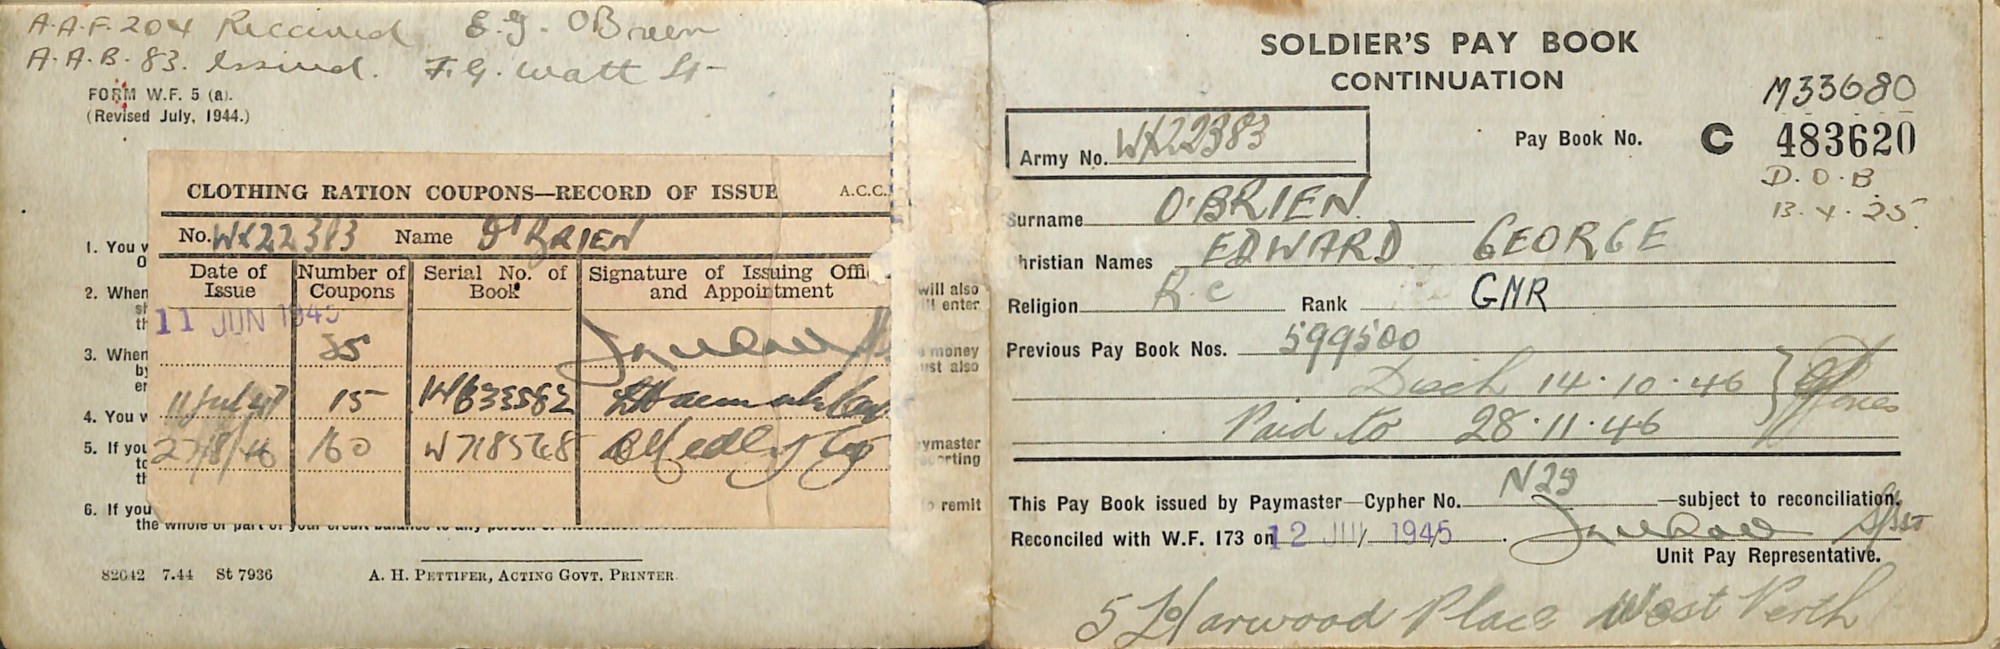 A.A.F. 204 Received E.G. O'Brien
A.A.B. 83. Issued. F.G. Watt Lt
FORM W.F. 5 (a).
(Revised July, 1944.)
CLOTHING RATION COUPONS—RECORD OF ISSUE A.C.C.
No. WX22383 Name O'BRIEN
Date of Issue Number of Coupons Serial No. of Book Signature of Issuing Offi and Appointment
11 JUN 1945 35
15 W633582
27/8/46 160 W718568
1. You w
2. When
3. When
4. You w
5. If you
6. If you
the whole or part of your credit balance to any person or
will also
ll enter
money
ust also
ymaster
orting
o remit
82042 7.44 St 7936 A. H. PETTIFER, ACTING GOVT. PRINTER.
SOLDIER'S PAY BOOK
CONTINUATION
M33680
Army No. WX22383 Pay Book No. C 483620
D.O.B
13.4.25
Surname O'BRIEN.
Christian Names EDWARD GEORGE
Religion R.C Rank GNR
Previous Pay Book Nos. 599500
Disch 14.10.46
Paid to 28.11.46
This Pay Book issued by Paymaster—Cypher No. N29 —subject to reconciliation.
Reconciled with W.F. 173 on 12 JUL 1945 S/Sgt
Unit Pay Representative.
5 Harwood Place West Perth